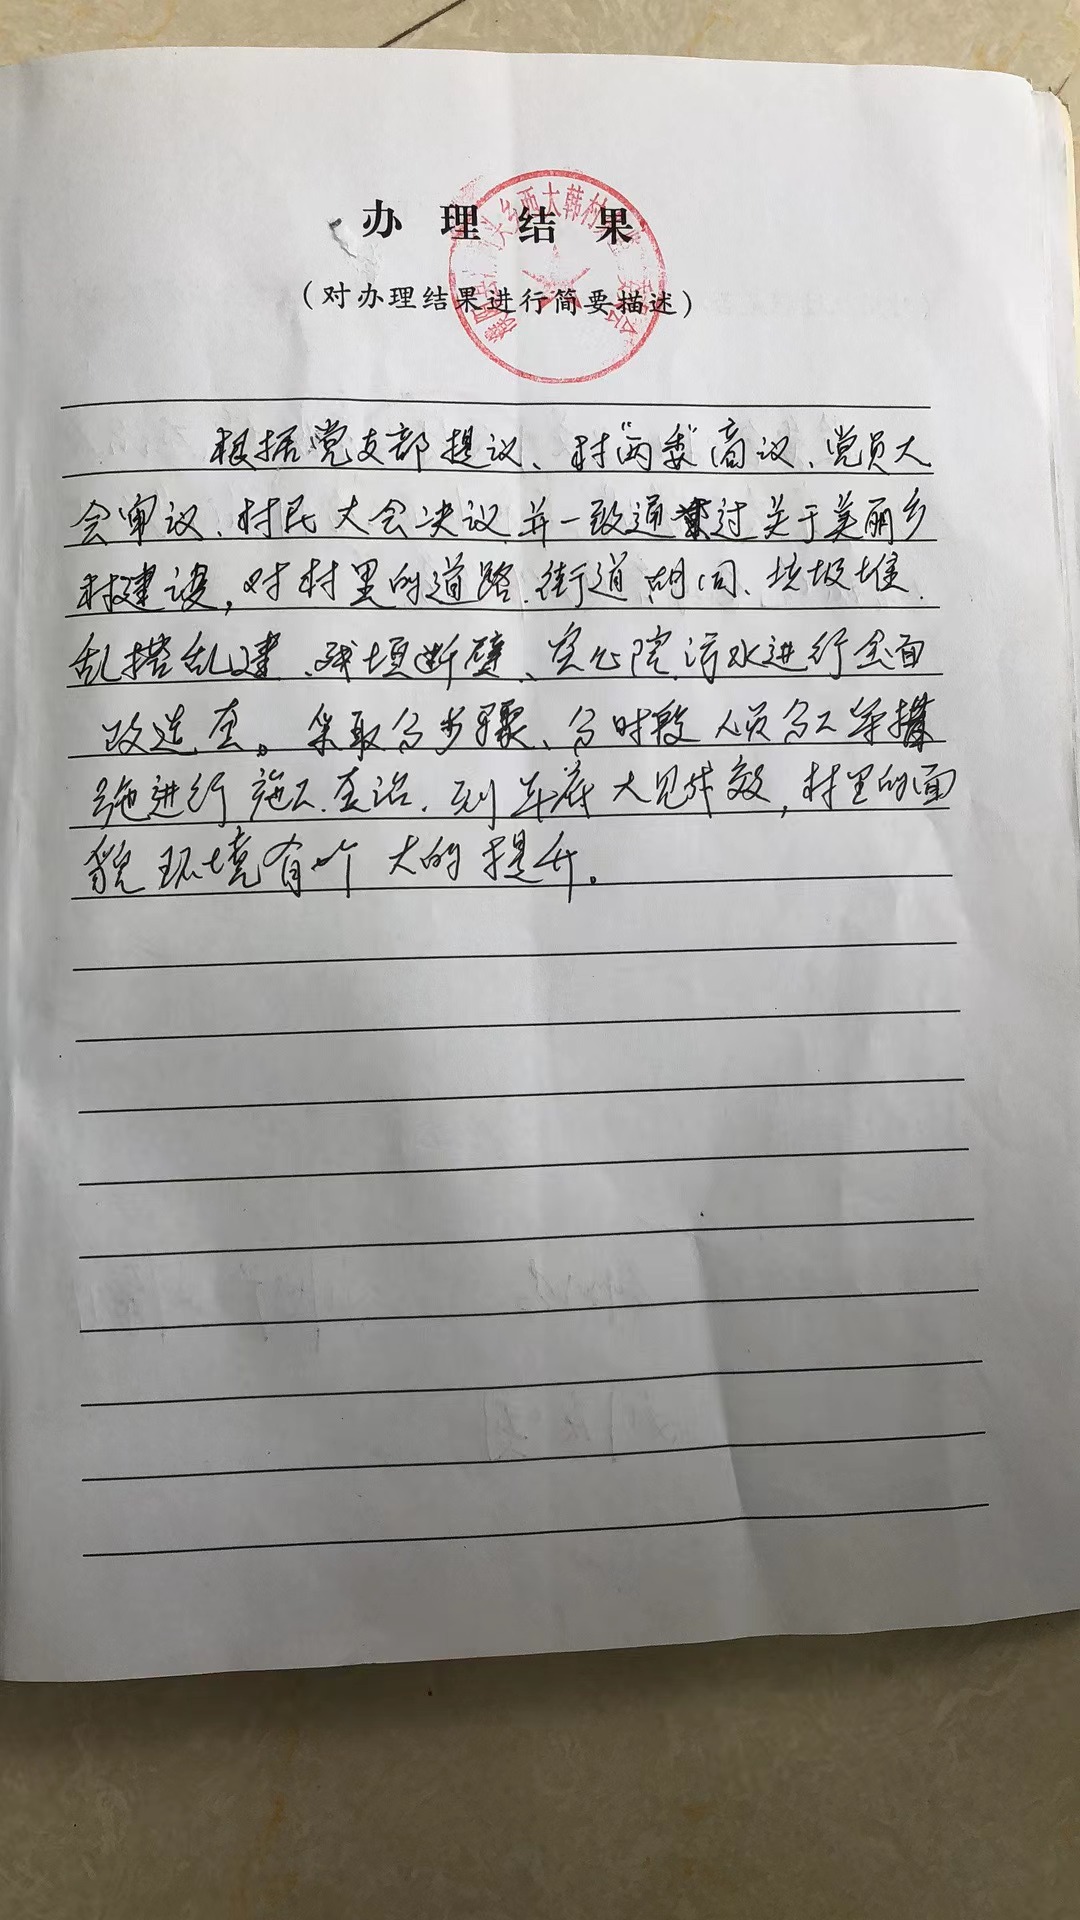 办理结果
(对办理结果进行简要描述)
乡西大韩村
根据党支部提议、村“两委”商议、党员大
会审议、村民大会决议并一致通过关于美丽乡
村建设,对村里的道路、街道胡同、垃圾堆、
乱搭乱建、残垣断壁、空心院、污水进行全面
改造查。采取分步骤、分时段人员分工等措
施进行施工、查治,到年底大见成效,村里的面
貌环境有个大的提升。